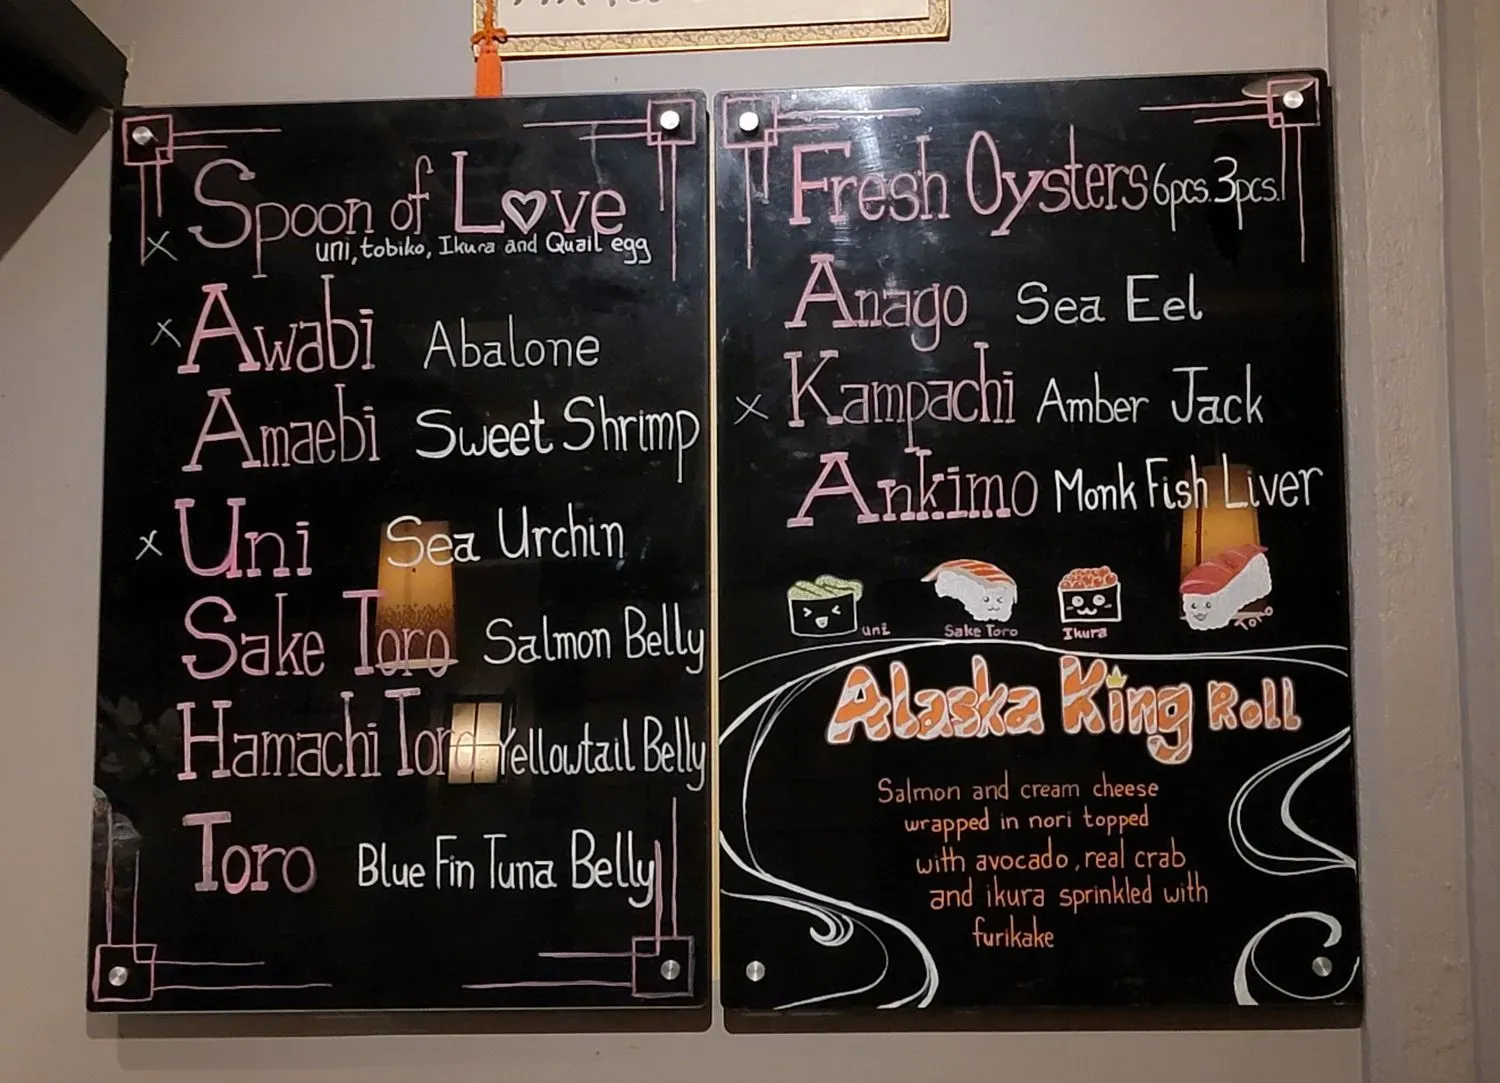 Spoon of Love
uni, tobiko, Ikura and Quail egg
x
x Awabi Abalone
Amaebi Sweet Shrimp
x Uni Sea Urchin
Sake Toro Salmon Belly
Hamachi Toro Yellowtail Belly
Toro Blue Fin Tuna Belly
Fresh Oysters 6pcs. 3pcs.
Anago Sea Eel
x Kampachi Amber Jack
Ankimo Monk Fish Liver
uni Sake Toro Ikura Toro
Alaska King Roll
Salmon and cream cheese
wrapped in nori topped
with avocado, real crab
and ikura sprinkled with
furikake